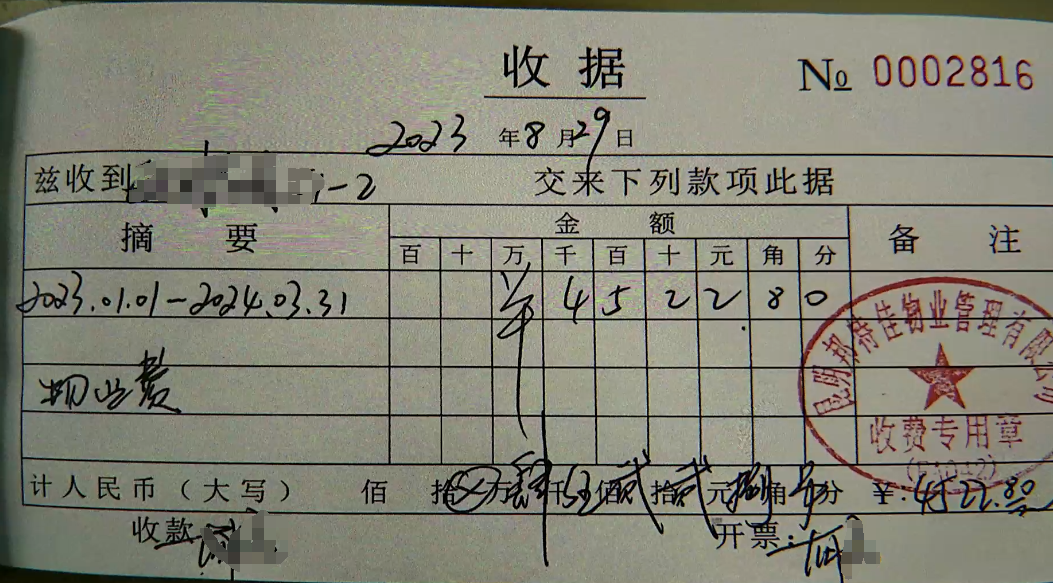 收据
№ 0002816
2023 年 8 月 29 日
兹收到 -2 交来下列款项此据
摘要 金额 备注
百 十 万 千 百 十 元 角 分
2023.01.01-2024.03.31 ¥ 4 5 2 2 8 0
物业费
特佳物业管理有限公司
收费专用章
计人民币(大写) 佰 拾 ⊗ 万 肆 千 伍 佰 贰 拾 贰 元 捌 角 零 分 ¥:4522.80
收款
开票: